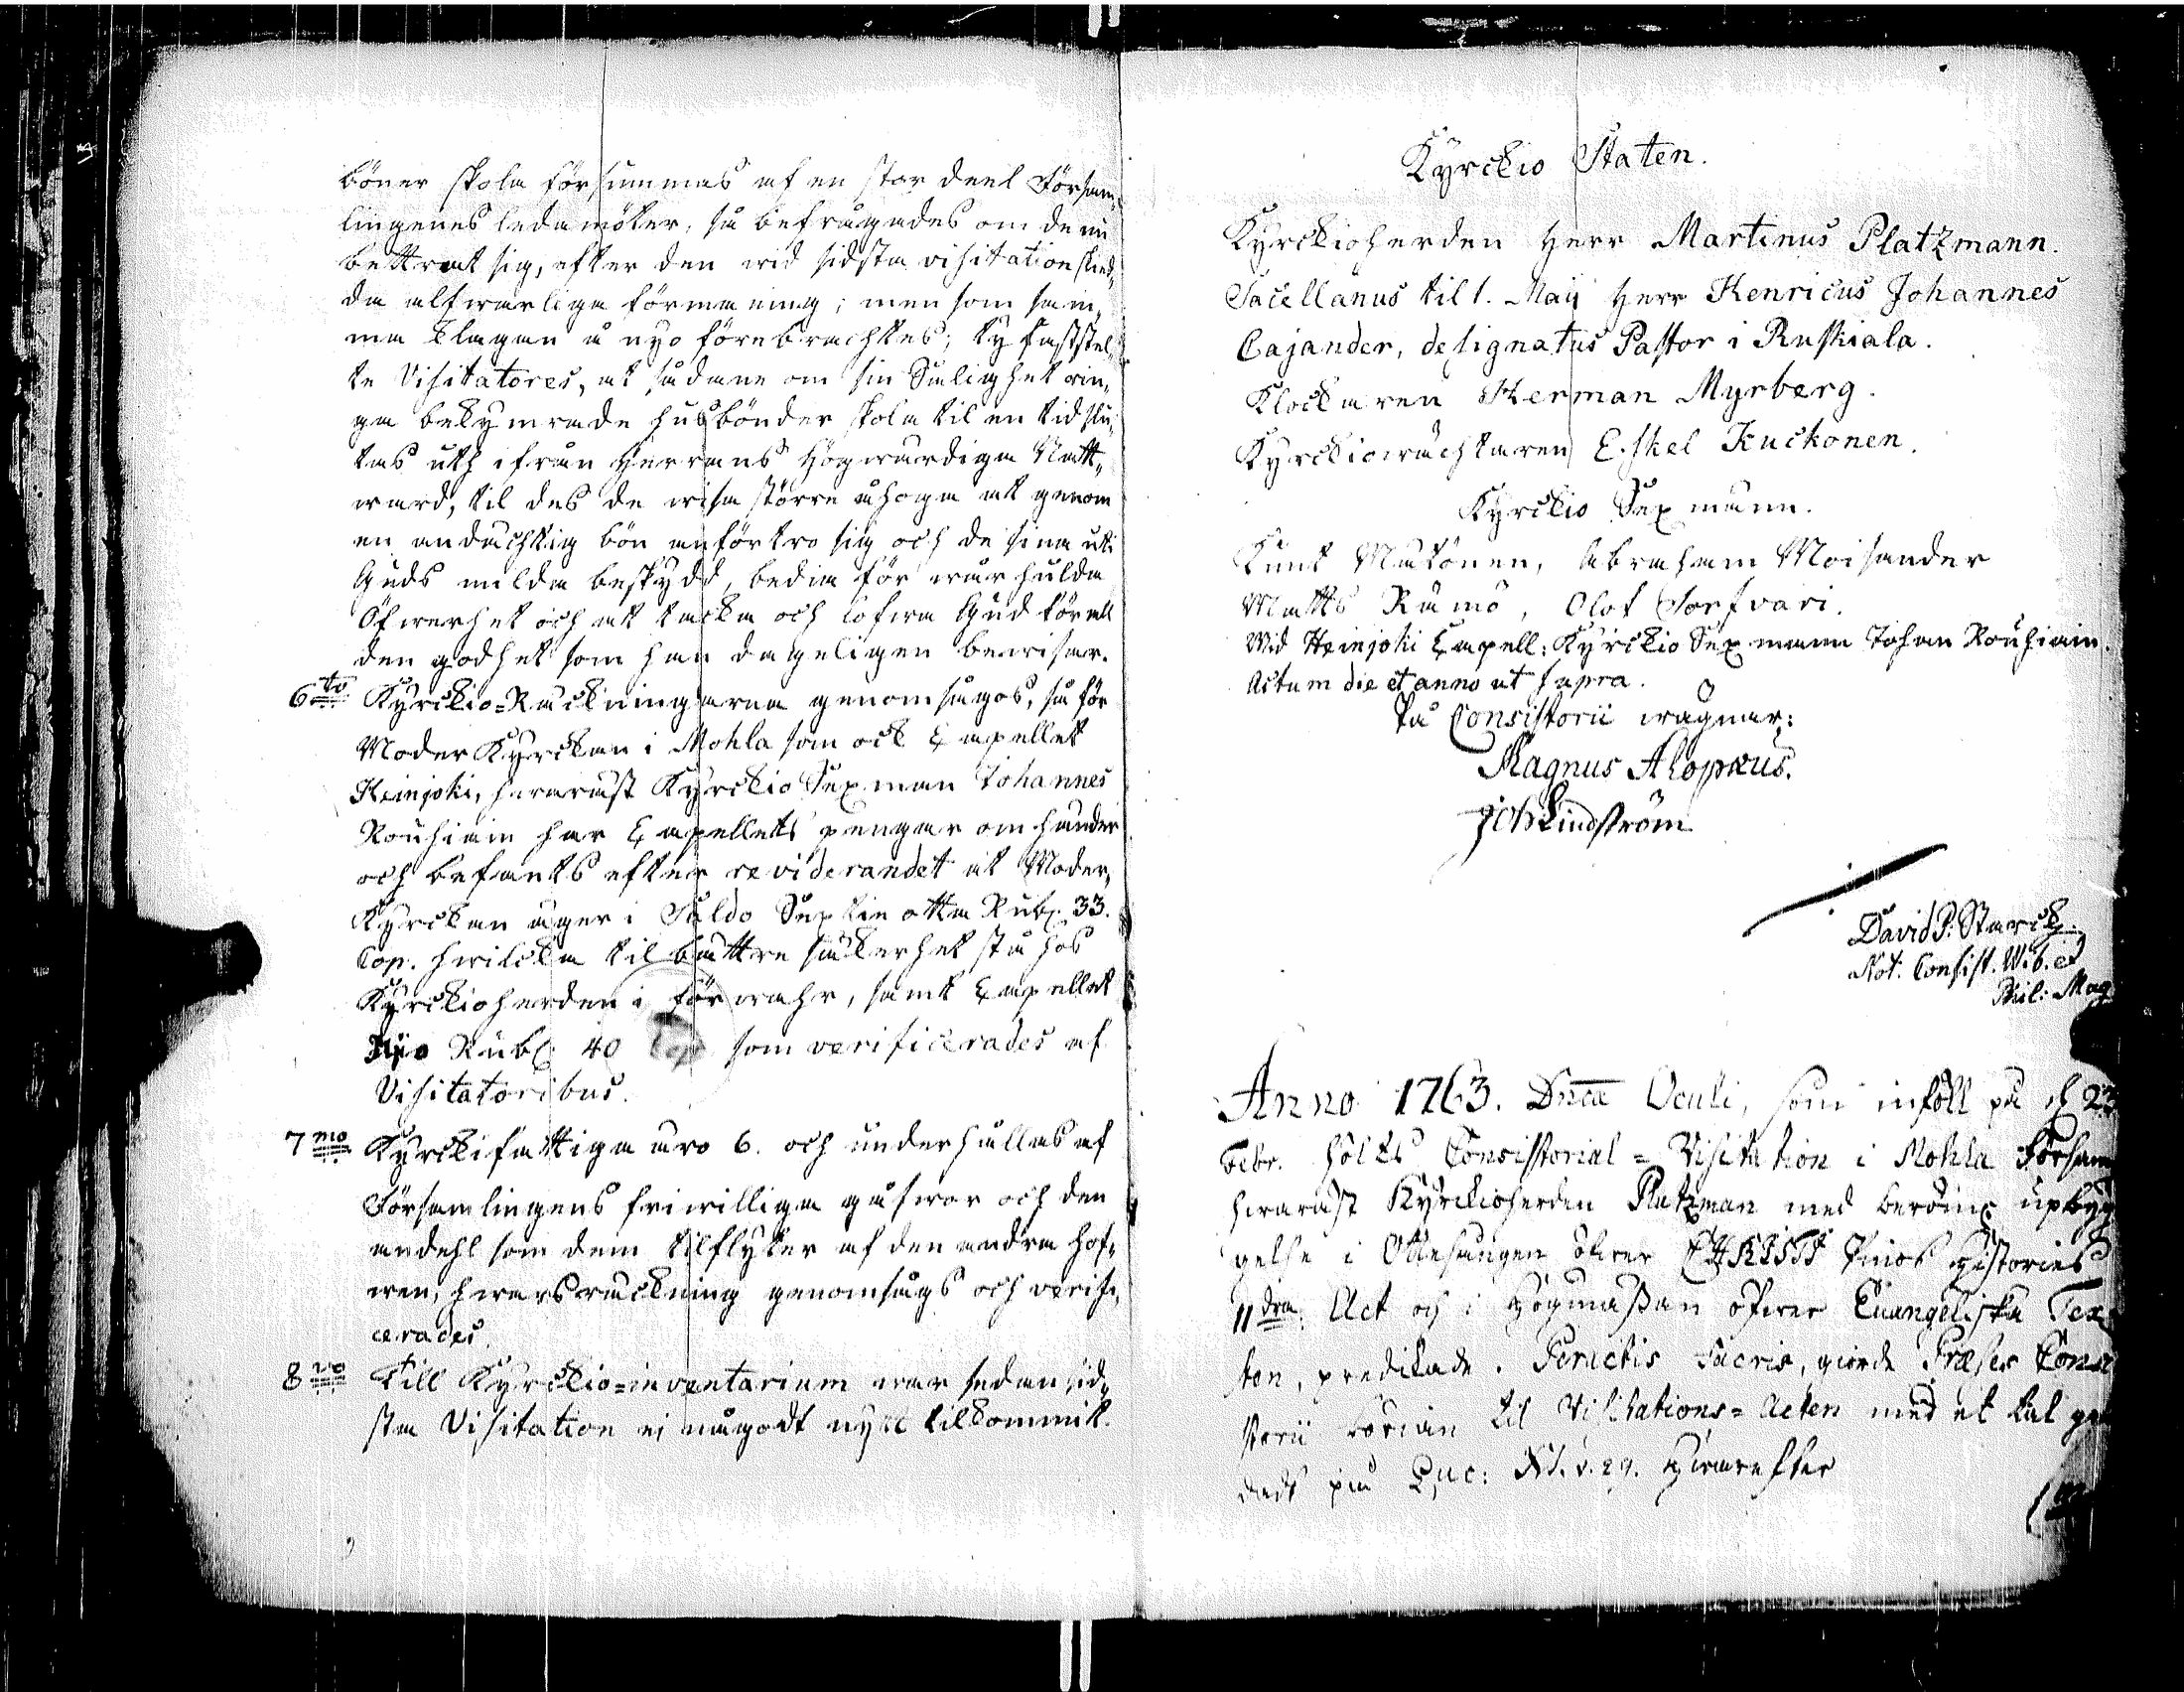 böner skola försummas af en stor deel Försam„
lingenes ledamöter, så befrågades om de nu
bettrat sig, efter den wid sidsta visitation sked„
da alfwarliga förmaning; men som sam„
ma klagan å nyo förebrachtes; ty faststel„
te Visitatores, at sådane om sin Salighet rin„
ga bekymrade husbönder skola til en tid slu„
tas uth ifrån Herrans Högwärdiga Natt„
ward, til des de wisa större åhoga at genom
en andächtig bön anförtro sig och de sina uti
Guds milda beskydd, bedia för wår hulda
Öfwerhet och at tacka och lofwa Gud för all
den godhet som han dageligen bewisar.
6to Kyrckio=Räckningarna genomsågos, så för
Moder Kyrckan i Mohla som ock Capellet
Heinjoki, hwaräst Kyrckio Sexman Johannes
Rouhiain har Capellets pengar om händer
och befants efter reviderandet at Moder„
Kyrckan äger i Saldo Sextie otta Rub. 33.
Cop. hwilcka til bättre säkerhet stå hos
Kyrckioherden i förwahr, samt Capellet
Nijo Rub. 40 Cop som verificerades af
Visitatoribus.
7mo Kyrckifattiga äro 6. och underhållas af
Församlingens friwilliga gåfwor och den
andehl som dem tilflyter af den andra hof„
wen, hwars räckning genomsågs och verifi„
cerades.
8vo Till Kyrckio=inventarium war sedan sid„
sta Visitation ej någodt nytt tilkommit.
Kyrckio Staten.
Kyrckioherden Herr Martinus Platzmann.
Sacellanus til 1. Maij Herr Henricus Johannes
Cajander, designatus Pastor i Ruskiala.
Klockaren Herman Myrberg.
Kyrckiowächtaren Eskel Kuckonen.
Kyrckio Sexmänn.
Knut Mutönen, Abraham Moisander
Matts Rämö, Olof Torfvari.
Wid Heinjoki Capell: Kyrckio Sexmann Johan Rouhiain.
Actum die et anno ut supra.
På Consistorii wägnar:
Magnus Alopæus.
Joh Lindström
David P. Starck
Not. Consist. Wib. et
Phil: Mag
Anno 1763. Dnca Oculi, som inföll på d 23
Febr. hölts Consistorial=Visitation i Mohla Försam
hwaräst Kyrckioherden Platzman med beröml upbyg
gelse i Ottesången öfwer CHRISTI Pinos Histories
II dra Act och i Högmässan öfwer Euangeliska Tex
ten, predikade. Peractis Sacris, giorde Præses Consi
storii början til Visitations=Acten med et tal gr
dadt på Luc: XI. v. 29. Hwarefter